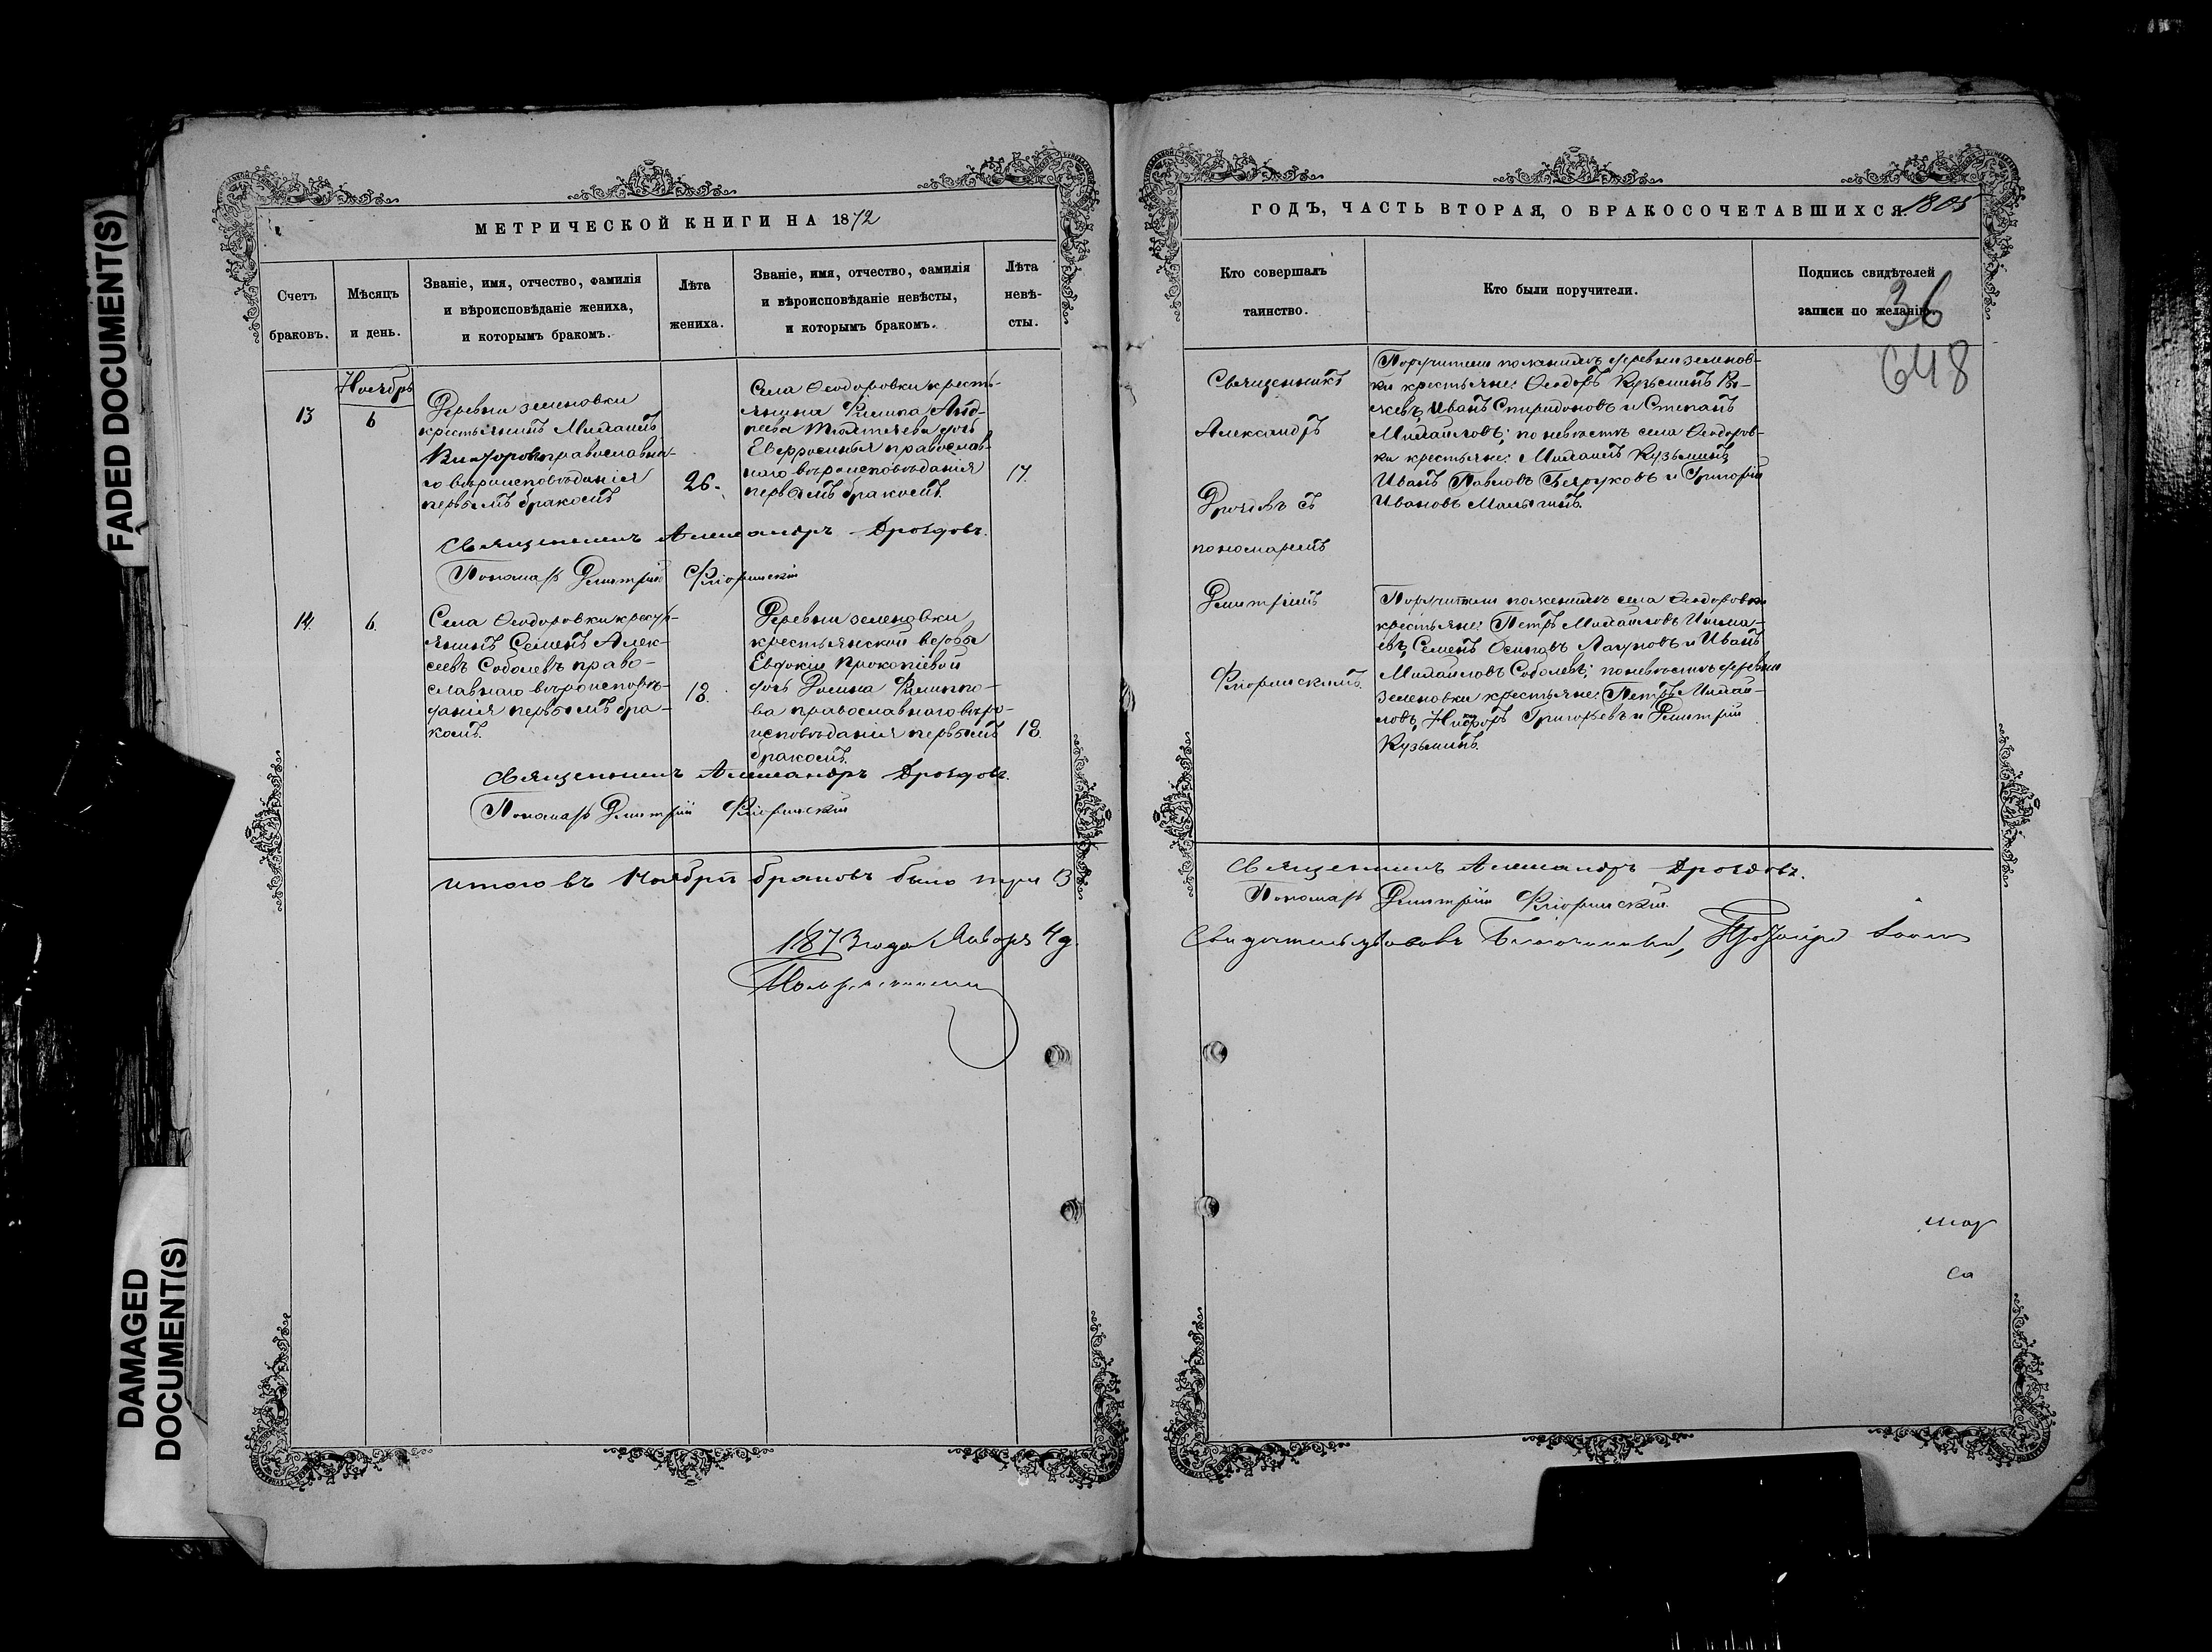 FADED DOCUMENT(S)
DAMAGED
DOCUMENT(S)
МЕТРИЧЕСКОЙ КНИГИ НА 1872
Счетъ
браковъ.
Мѣсяцъ
и день.
Званіе, имя, отчество, фамилія
и вѣроисповѣданіе жениха,
и которымъ бракомъ.
Лѣта
жениха.
Званіе, имя, отчество, фамилія
и вѣроисповѣданіе невѣсты,
и которымъ бракомъ.
Лѣта
невѣ-
сты.
Ноябрь
13
6
Деревни Зеленовки
крестьянинъ Михаилъ
православна-
го вѣроисповѣданія
первымъ бракомъ
26.
Села Ѳеодоровки кресть-
янина Филипа Анд-
реева дочь
Евфросинья православ-
наго вѣроисповѣданія
первымъ бракомъ.
17.
Священникъ Александръ Дроздовъ.
Пономарь Димитрій Фліоринскій
14.
6.
Села Ѳеодоровки кресть-
янинъ Семенъ Алек-
сеевъ Соболевъ право-
славнаго вѣроисповѣ-
данія первымъ бра-
комъ.
18.
Деревни Зеленовки
крестьянской вдовы
Евдокіи Прокопіевой
дочь Домна Филиппо-
ва православнаго вѣро-
исповѣданія первымъ
бракомъ.
18.
Священникъ Александръ Дроздовъ.
Пономарь Димитрій Фліоринскій
Итого въ Ноябрѣ браковъ было три 3
1873 года Января 4 д.
ГОДЪ, ЧАСТЬ ВТОРАЯ, О БРАКОСОЧЕТАВШИХСЯ.
1805
Кто совершалъ
таинство.
Кто были поручители.
Подпись свидѣтелей
записи по желанію.
36
648
Священникъ
Александръ
Дроздовъ съ
пономаремъ
Димитріемъ
Фліоринскимъ.
Поручители по женихѣ деревни Зеленов-
ки крестьяне: Ѳеодоръ Кузьминъ
Иванъ Спиридоновъ и Степанъ
Михайловъ; по невѣстѣ села Ѳеодоров-
ки крестьяне: Михаилъ Кузьминъ
Иванъ Павловъ и Григорій
Ивановъ
Поручители по женихѣ села Ѳеодоровки
крестьяне: Петръ Михайловъ
Семенъ Осиповъ и Иванъ
Михайловъ Соболевъ; по невѣстѣ деревни
Зеленовки крестьяне: Петръ Михай-
ловъ, Никифоръ Григорьевъ и Димитрій
Кузьминъ.
Священникъ Александръ Дроздовъ.
Пономарь Димитрій Фліоринскій.
Свидѣтельствовалъ Благочинный,